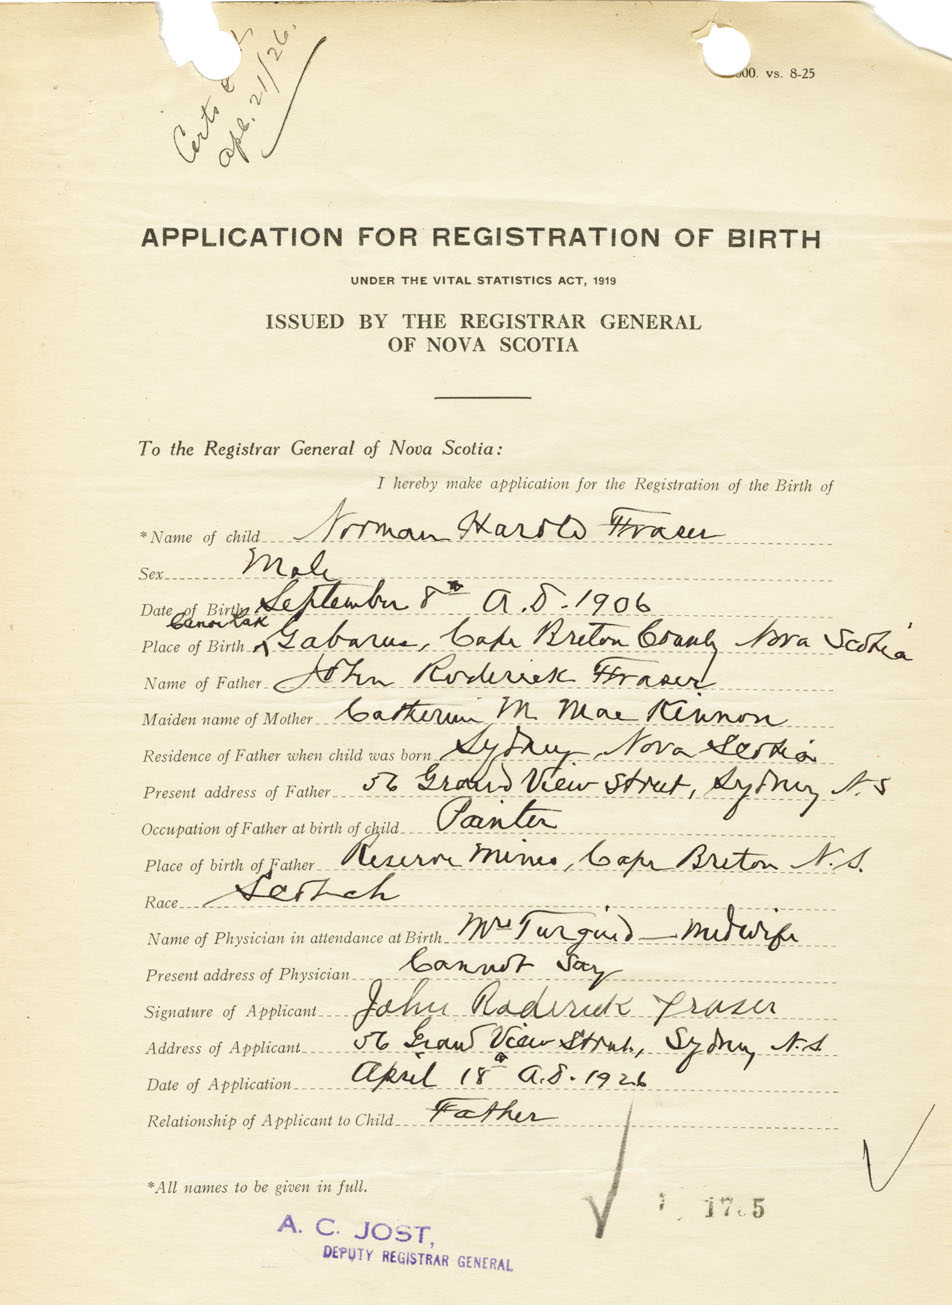 Certs
Apl. 21/26.
00. vs. 8-25
APPLICATION FOR REGISTRATION OF BIRTH
UNDER THE VITAL STATISTICS ACT, 1919
ISSUED BY THE REGISTRAR GENERAL
OF NOVA SCOTIA
To the Registrar General of Nova Scotia:
I hereby make application for the Registration of the Birth of
*Name of child Norman Harold Fraser
Sex Male
Date of Birth September 8th A.D. 1906
Place of Birth Gabarus, Cape Breton County Nova Scotia
Name of Father John Roderick Fraser
Maiden name of Mother Catherine M. Mac Kinnon
Residence of Father when child was born Sydney, Nova Scotia
Present address of Father 56 Grand View Street, Sydney N.S
Occupation of Father at birth of child Painter
Place of birth of Father Reserve Mines, Cape Breton N.S.
Race Scotch
Name of Physician in attendance at Birth Mrs - Midwife
Present address of Physician Cannot Say
Signature of Applicant John Roderick Fraser
Address of Applicant 56 Grand View Street, Sydney N.S.
Date of Application April 18th A.D. 1926
Relationship of Applicant to Child Father
*All names to be given in full.
A. C. JOST,
DEPUTY REGISTRAR GENERAL